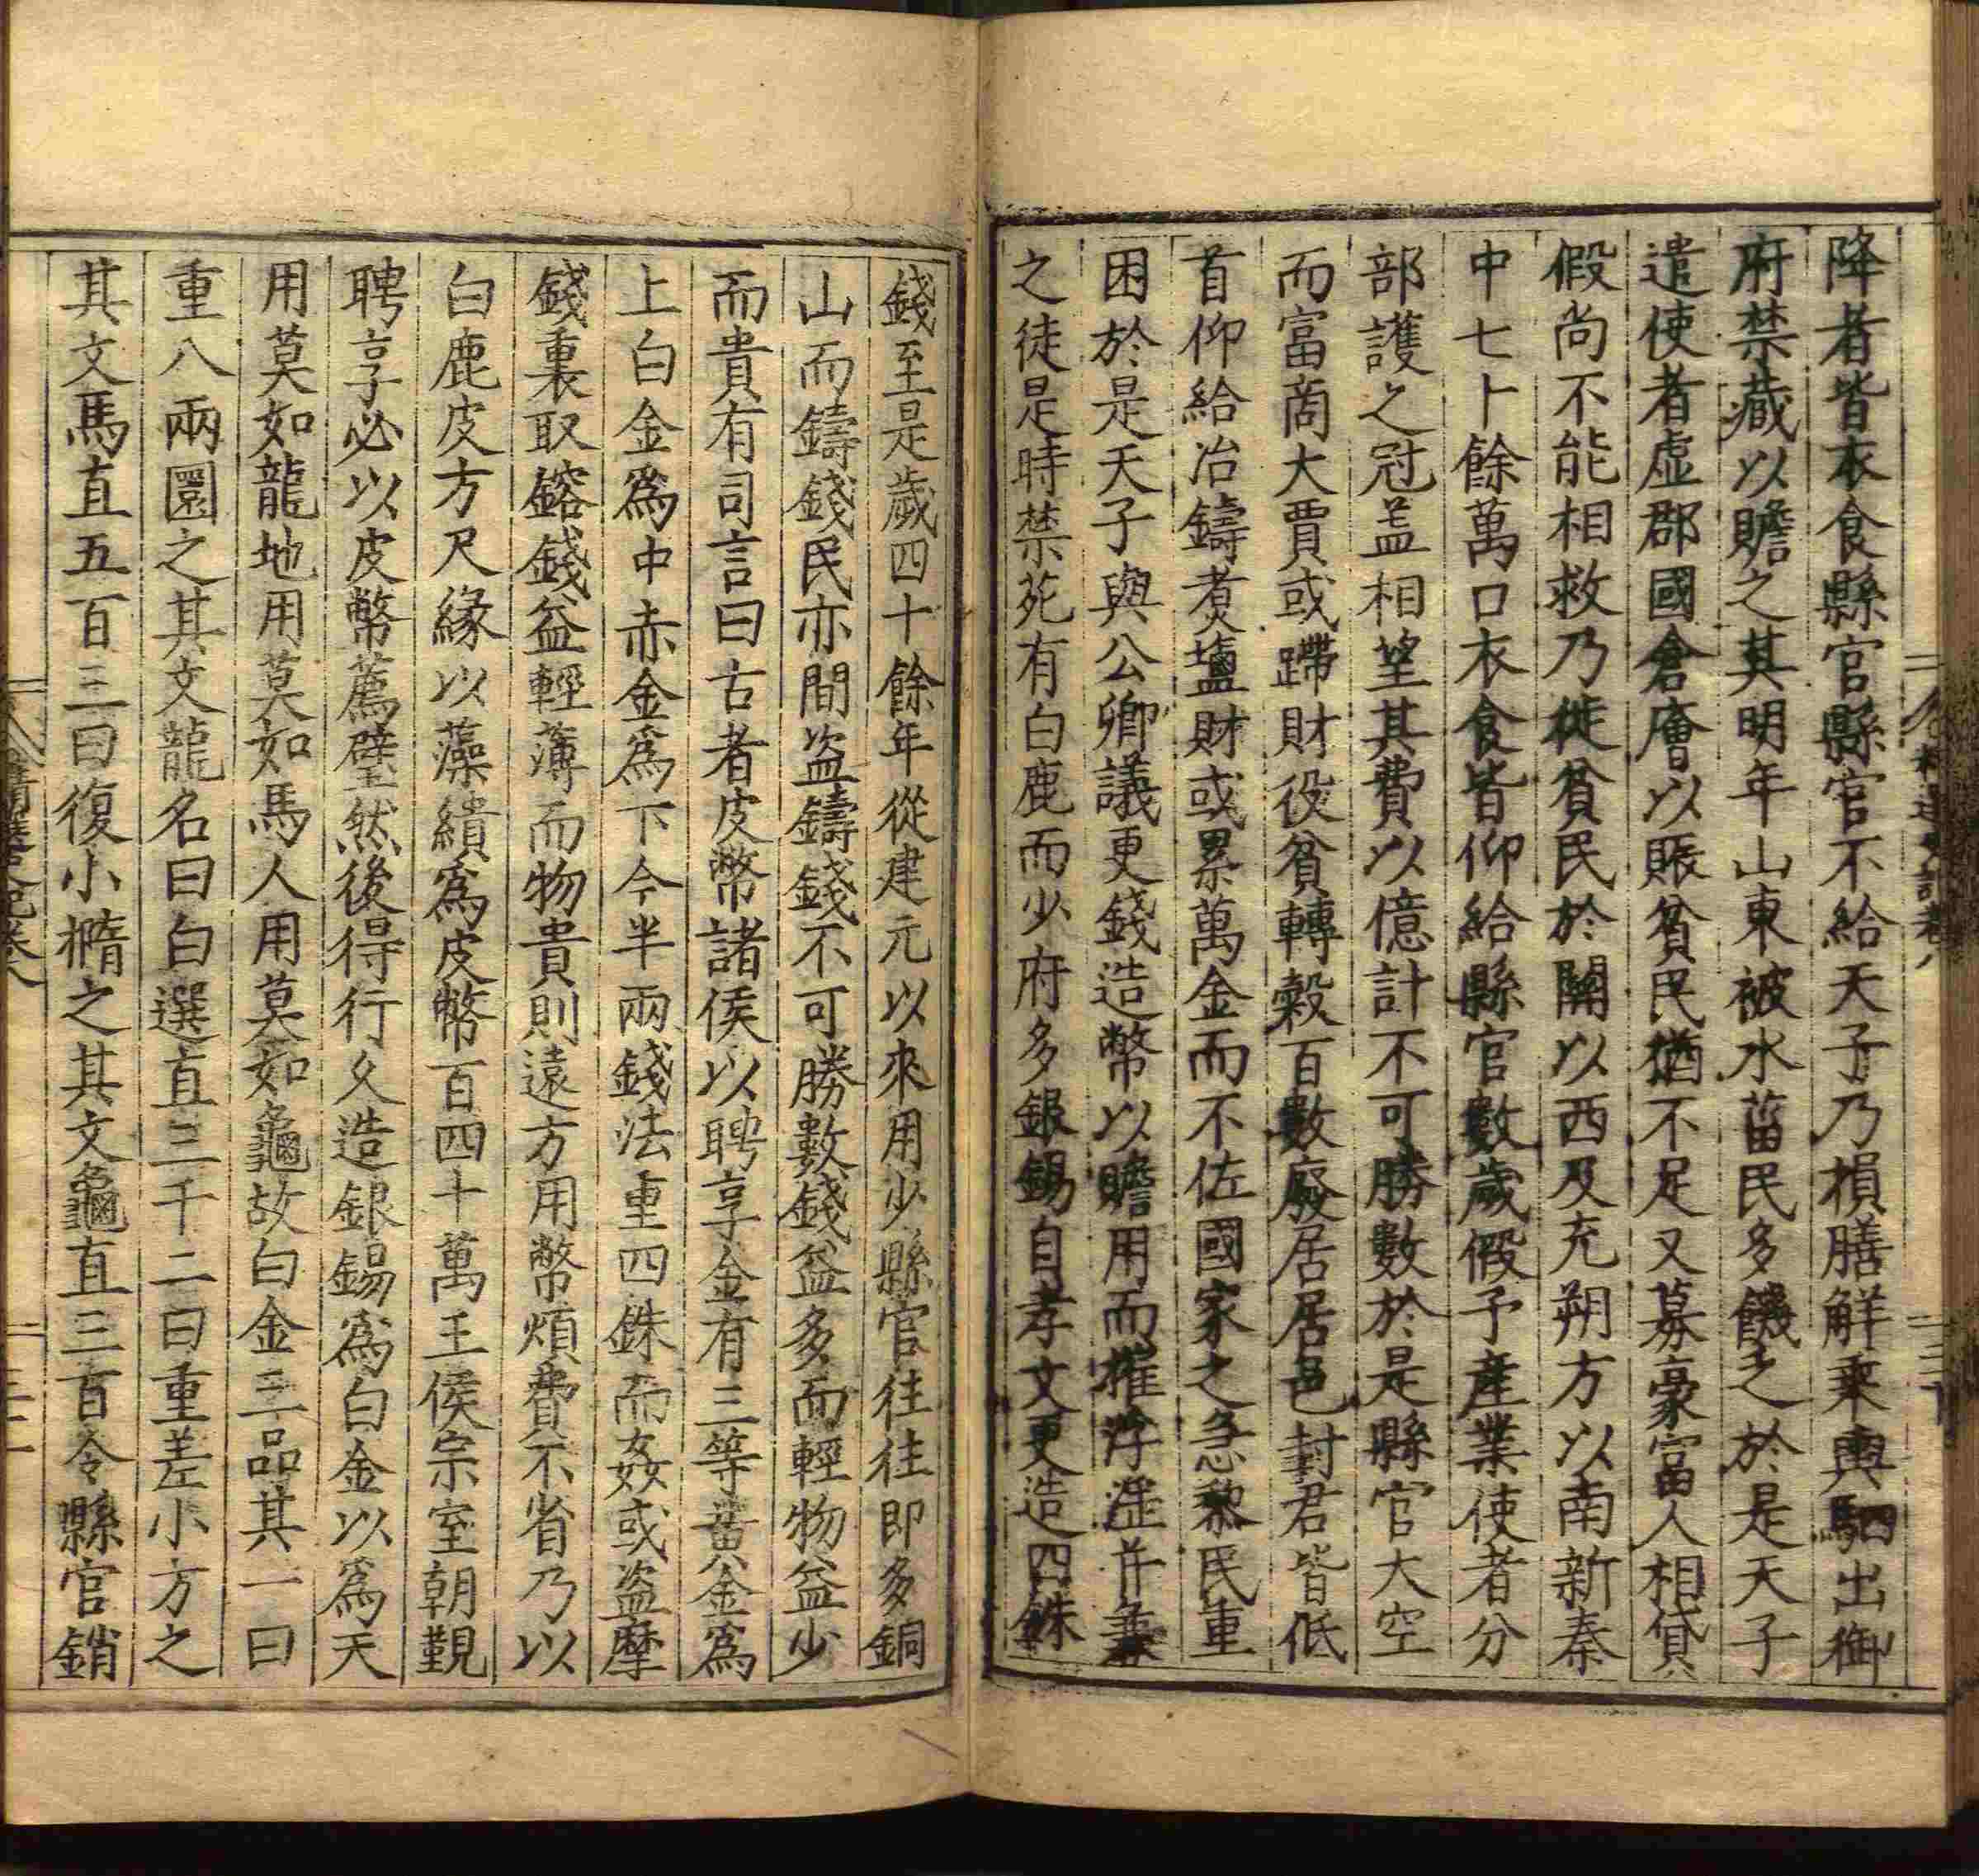 降者皆衣食縣官縣官不給天子乃損膳解乘輿駟出御
府禁藏以贍之其明年山東被水菑民多饑乏於是天子
遣使者虛郡國倉廥以賑貧民猶不足又募豪富人相貸
假尚不能相救乃徙貧民於關以西及充朔方以南新秦
中七十餘萬口衣食皆仰給縣官數歲假予產業使者分
部護之冠盖相望其費以億計不可勝數於是縣官大空
而富商大賈或蹛財役貧轉穀百數廢居居邑封君皆低
首仰給冶鑄煑鹽財或累萬金而不佐國家之急黎民重
困於是天子與公卿議更錢造幣以贍用而摧浮淫并兼
之徒是時禁苑有白鹿而少府多銀錫自孝文更造四銖
錢至是歲四十餘年從建元以來用少縣官往往即多銅
山而鑄錢民亦間盜鑄錢不可勝數錢益多而輕物益少
而貴有司言曰古者皮幣諸侯以聘享金有三等黃金爲
上白金爲中赤金爲下今半兩錢法重四銖而姦或盜摩
錢裏取鎔錢益輕薄而物貴則遠方用幣煩費不省乃以
白鹿皮方尺緣以藻繢爲皮幣百四十萬王侯宗室朝覲
聘享必以皮幣薦璧然後得行又造銀錫爲白金以爲天
用莫如龍地用莫如馬人用莫如龜故白金三品其一曰
重八兩圜之其文龍名曰白選直三千二曰重差小方之
其文馬直五百三曰復小橢之其文龜直三百令縣官銷